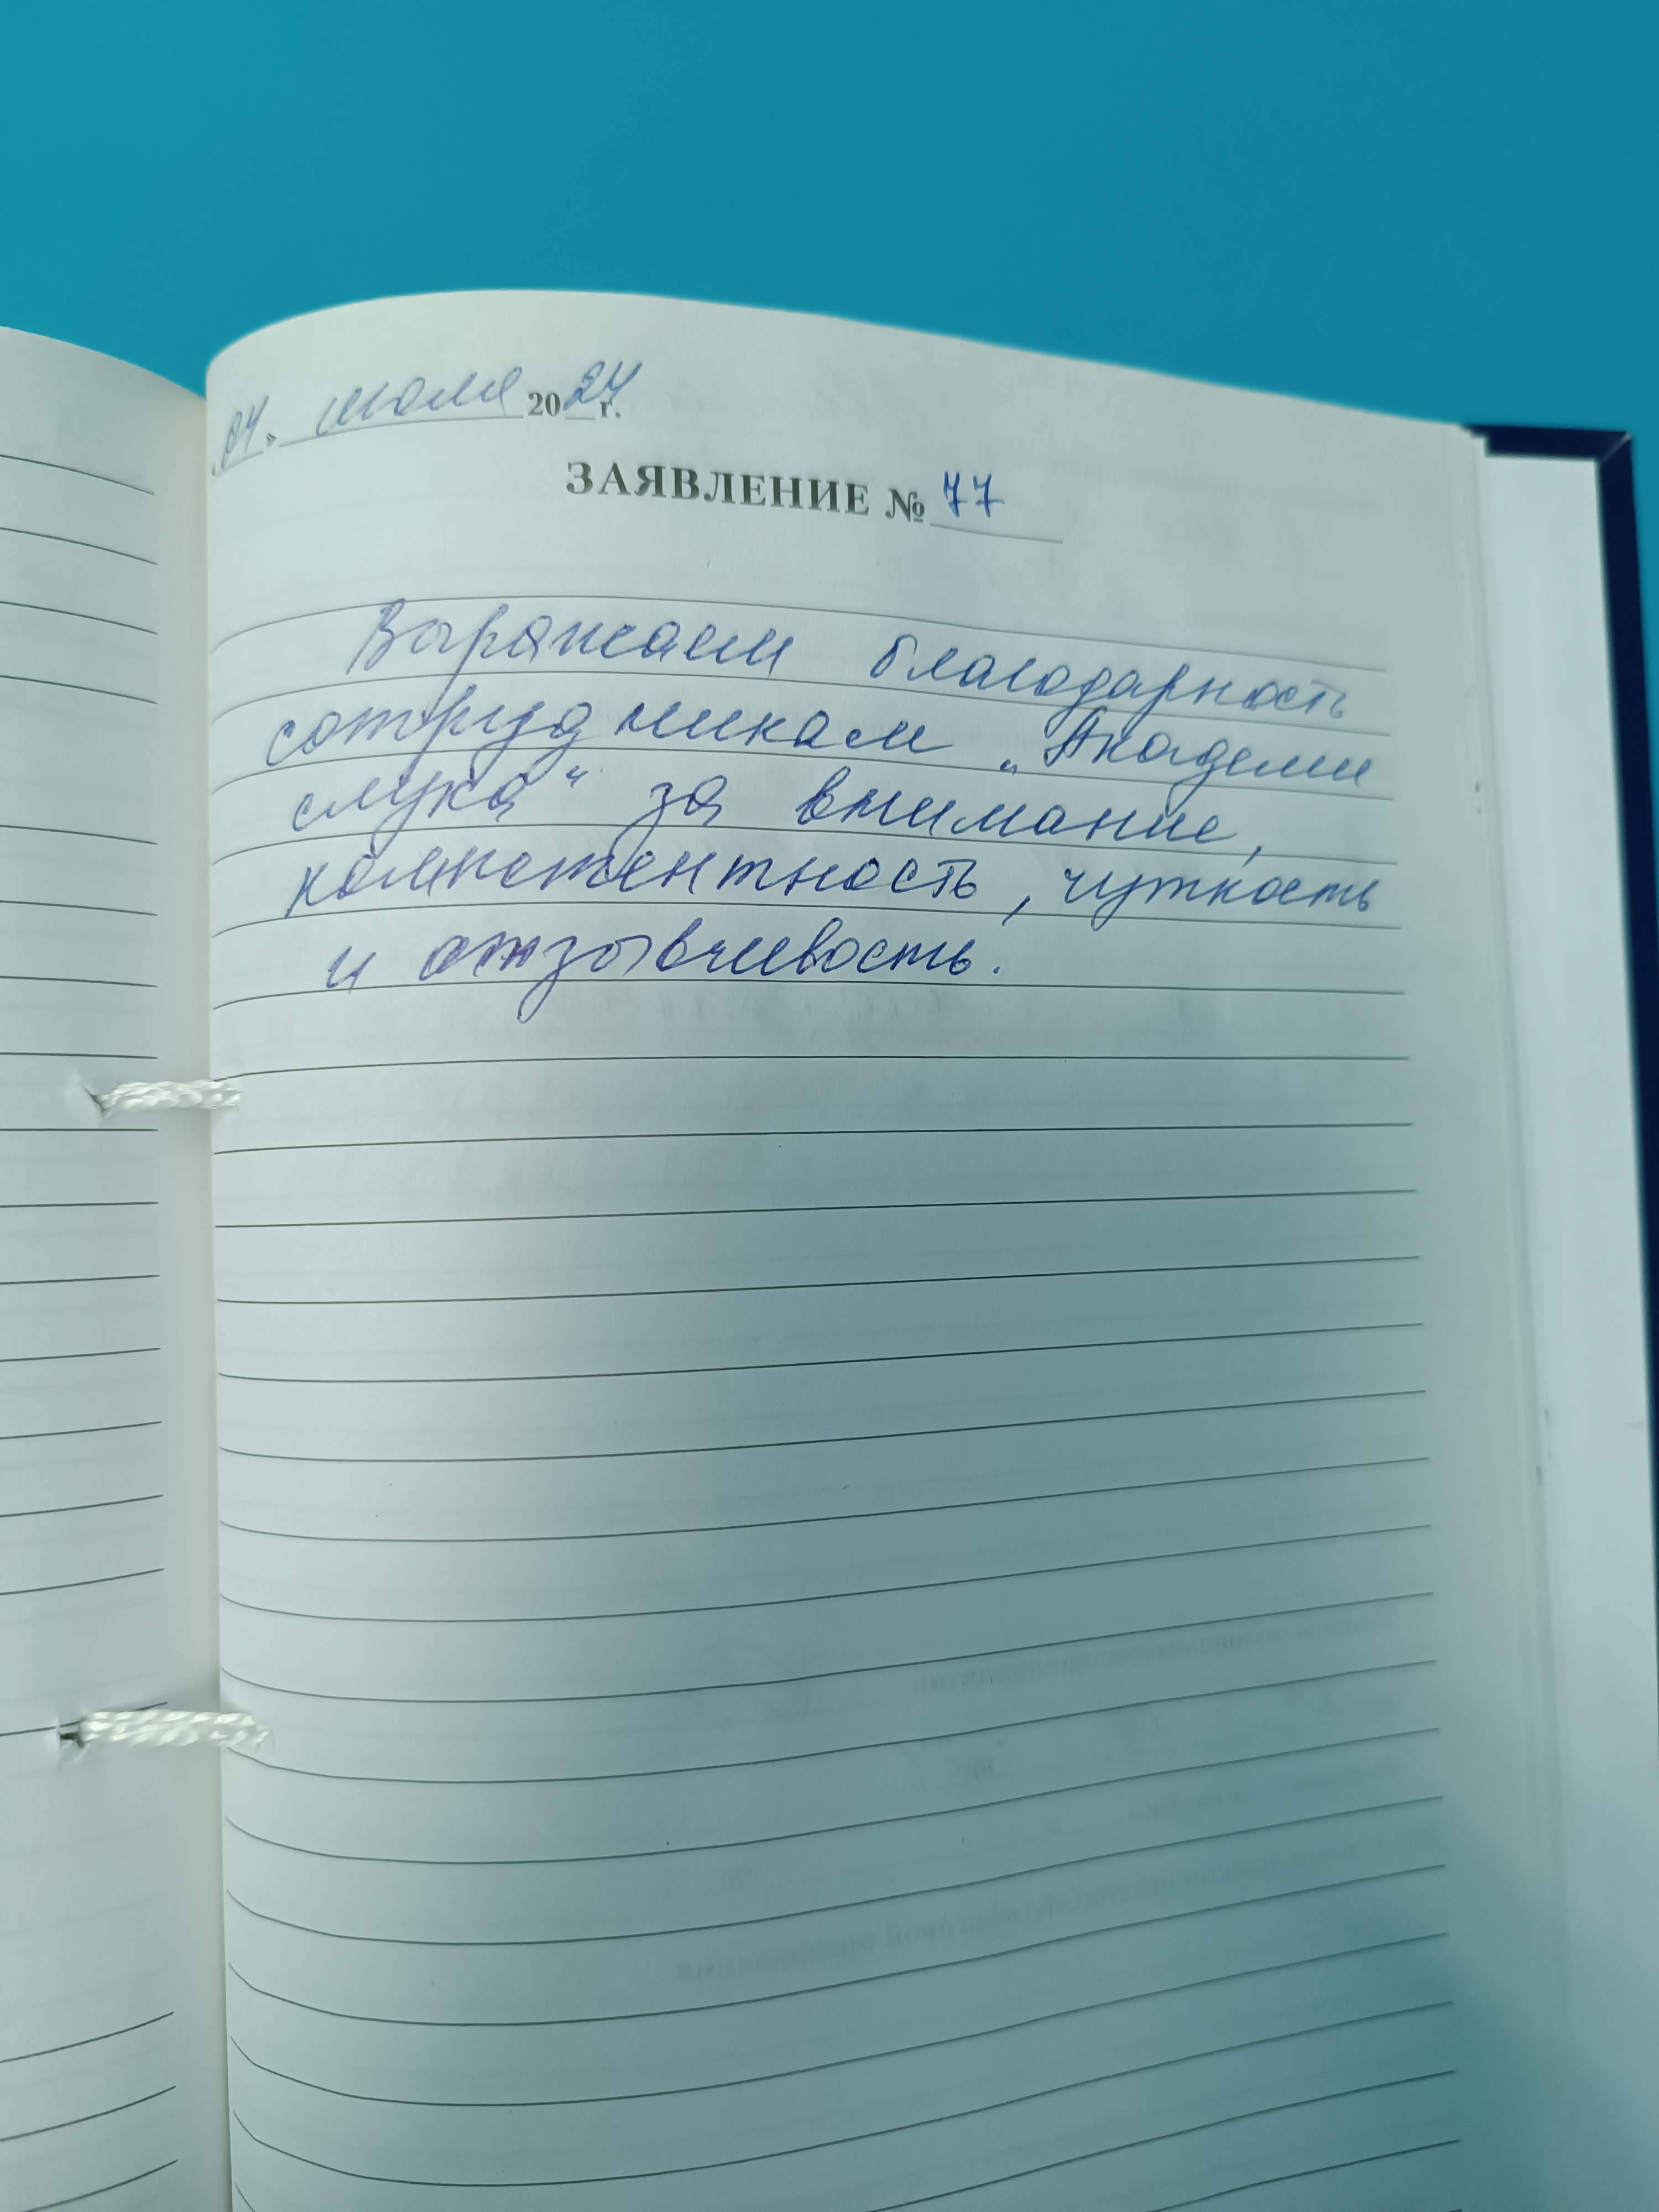 «04» июля 2024 г.
ЗАЯВЛЕНИЕ № 77
Выражаем благодарность
сотрудникам „Академии
слуха“ за внимание,
компетентность, чуткость
и отзывчивость.